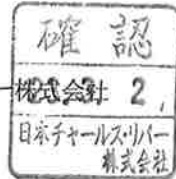 確認
株式会社 2,
日本チャールズ・リバー
株式会社